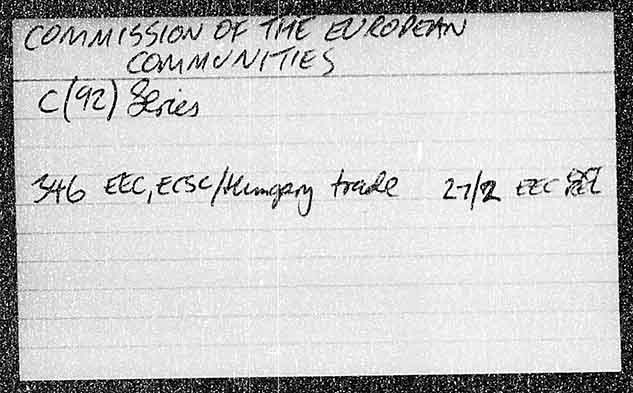 COMMISSION OF THE EUROPEAN
COMMUNITIES
C(92) Series
346 EEC, ECSC/Hungary trade 27/2 EEC